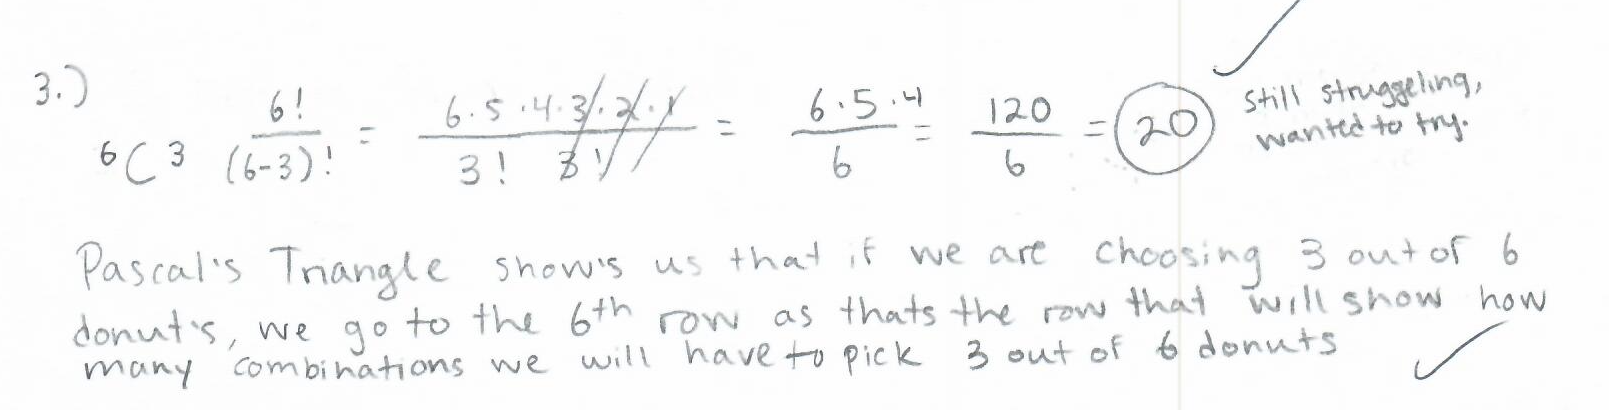 3.)
6C3 6!/(6-3)! = 6.5.4.3.2.1/3! 3! = 6.5.4/6 = 120/6 = 20
Still struggeling,
wanted to try.
Pascal's Triangle show's us that if we are choosing 3 out of 6
donut's, we go to the 6th row as thats the row that will show how
many combinations we will have to pick 3 out of 6 donuts